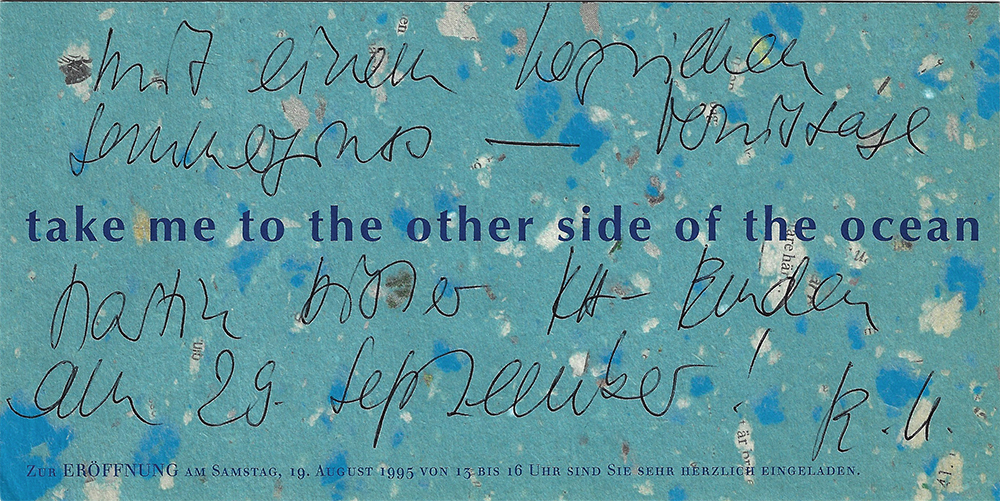 mit einem herzlichen
Sommergruss — Vernissage
take me to the other side of the ocean
Martin
am 29. September! R.U.
ZUR ERÖFFNUNG AM SAMSTAG, 19. AUGUST 1995 VON 13 BIS 16 UHR SIND SIE SEHR HERZLICH EINGELADEN.